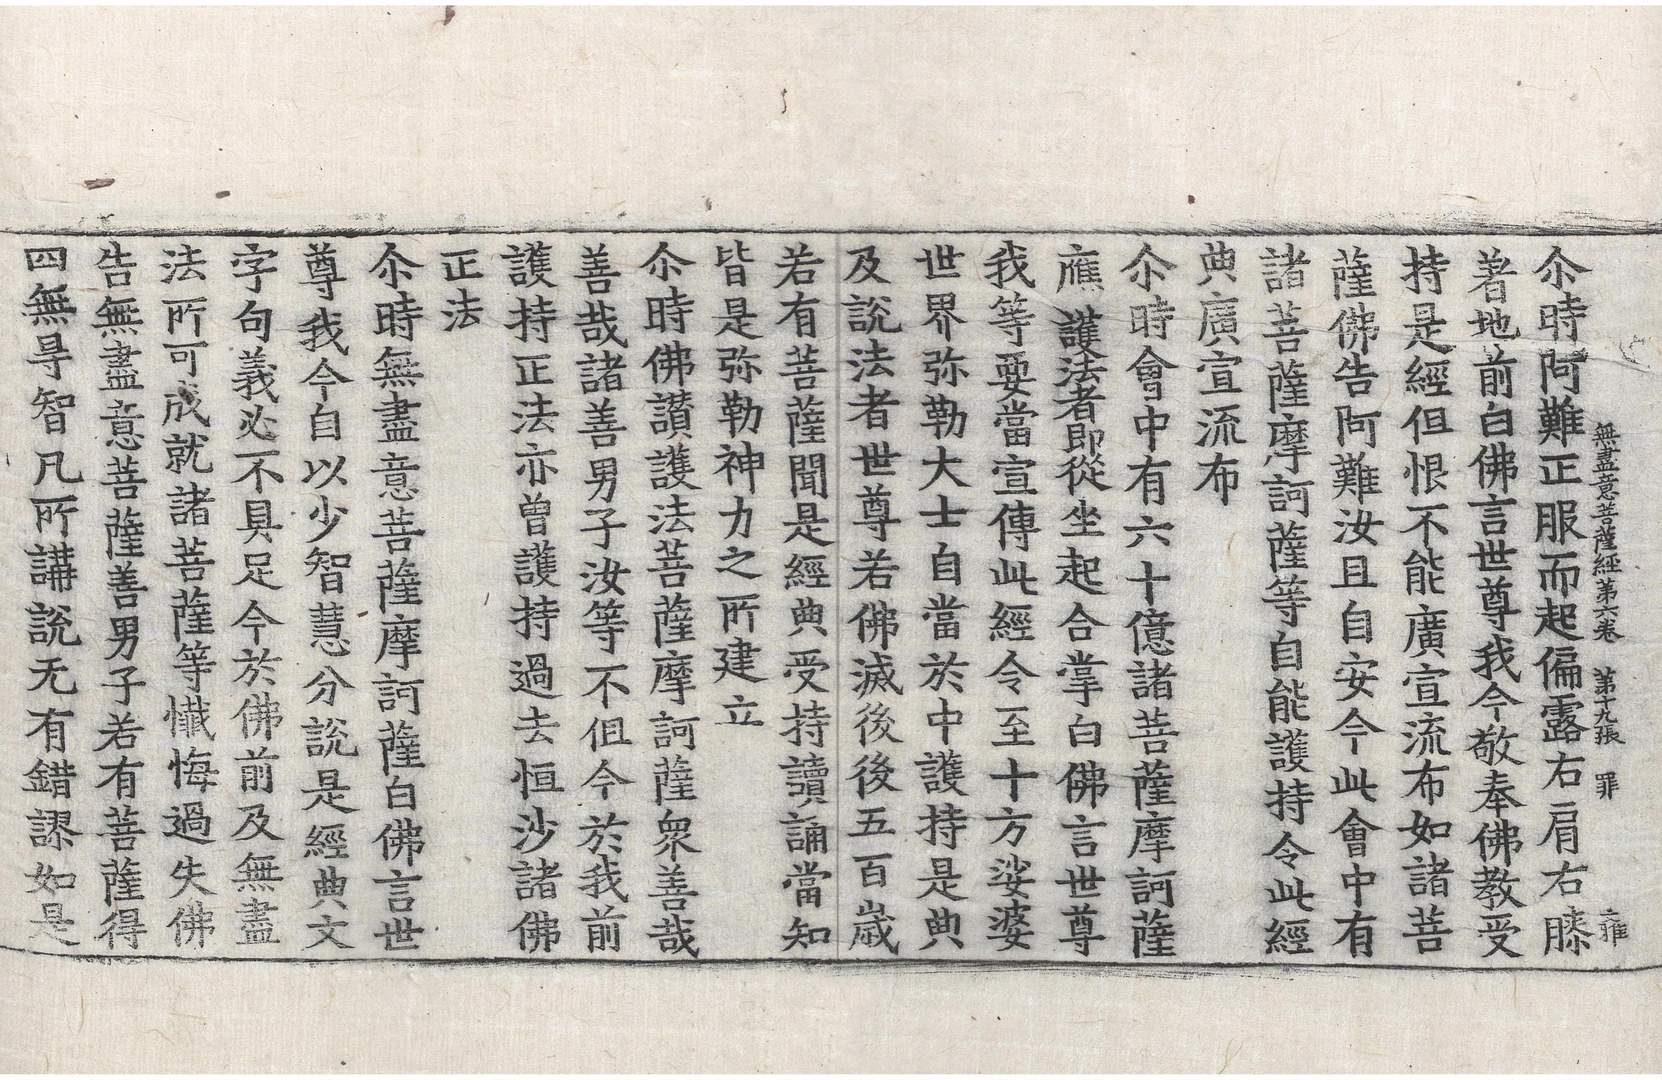 無盡意菩薩經第六卷　第十九張　罪
尒時阿難正服而起偏露右肩右膝
著地前白佛言世尊我今敬奉佛教受
持是經但恨不能廣宣流布如諸菩
薩佛告阿難汝且自安今此會中有
諸菩薩摩訶薩等自能護持令此經
典廣宣流布
尒時會中有六十億諸菩薩摩訶薩
應護法者即從坐起合掌白佛言世尊
我等要當宣傳此經令至十方娑婆
世界弥勒大士自當於中護持是典
及說法者世尊若佛滅後後五百歲
若有菩薩聞是經典受持讀誦當知
皆是弥勒神力之所建立
尒時佛讃護法菩薩摩訶薩衆善哉
善哉諸善男子汝等不但今於我前
護持正法亦曾護持過去恒沙諸佛
正法
尒時無盡意菩薩摩訶薩白佛言世
尊我今自以少智慧分說是經典文
字句義必不具足今於佛前及無盡
法所可成就諸菩薩等懺悔過失佛
告無盡意菩薩善男子若有菩薩得
四無㝵智凡所講說无有錯謬如是